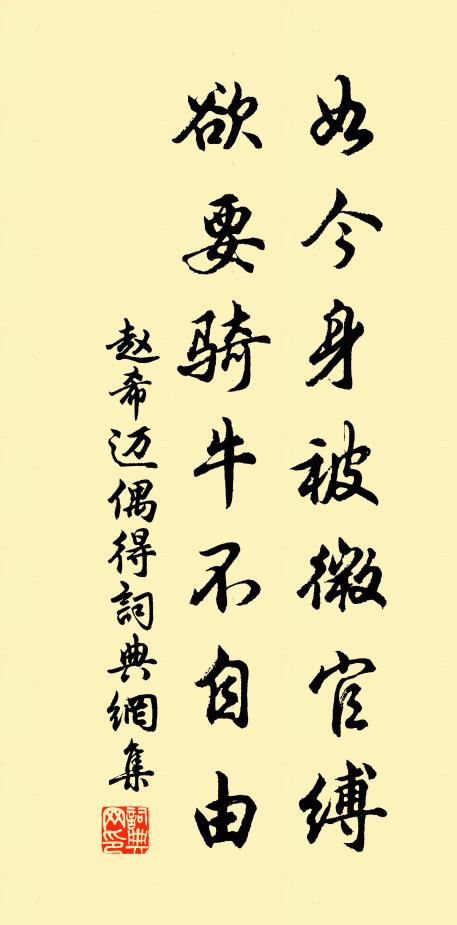 如今身被微官缚
欲要骑牛不自由
赵希迈偶得詞典網集
詞典网印